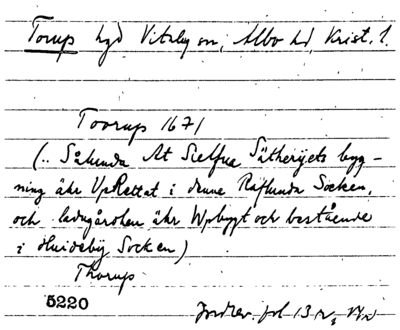 Torup hgd Vitaby sn, Albo hd, Krist. l.
Toorup 1671
(.. Sålunda At Sielfua Sätherijets byg-
ning ähr UpRettat i denne Raflunda Socken,
och ladugårdhen ähr Wpbygt och bestående
i Huideby Socken)
Thorup
5220
Jordrev. fol 13 v,